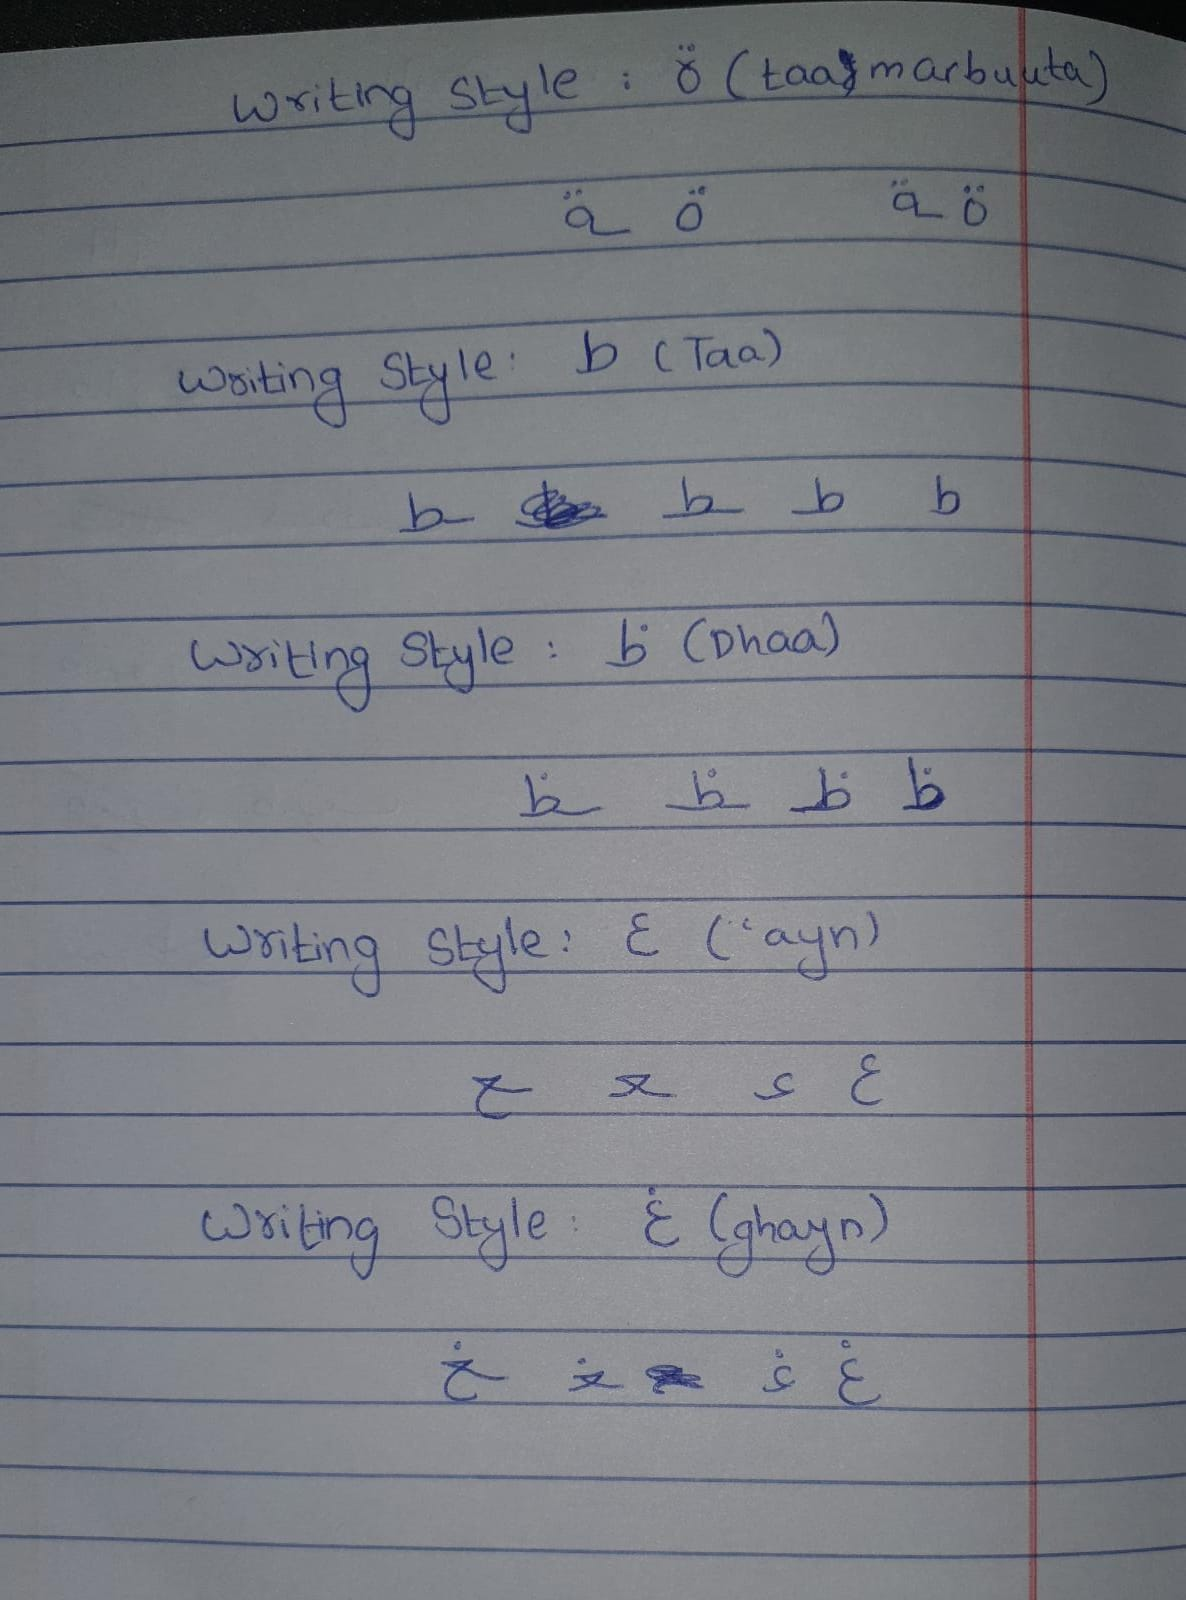 Writing Style : ة (taa marbuuta)
ـة ة ـة ة
Writing Style: ط (Taa)
ـط ـطـ طـ ط
Writing Style : ظ (Dhaa)
ـظ ـظـ ظـ ظ
Writing Style: ع ('ayn)
ـع ـعـ عـ ع
Writing Style: غ (ghayn)
ـغ ـغـ غـ غ